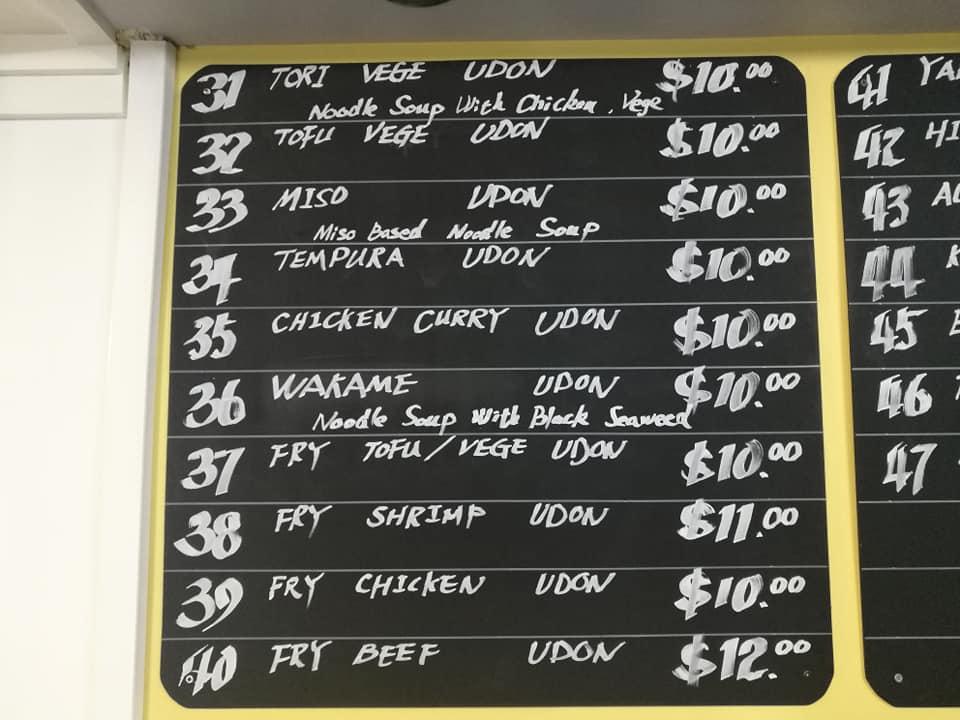 31 TORI VEGE UDON $10.00
Noodle Soup With Chicken, Vege
32 TOFU VEGE UDON $10.00
33 MISO UDON $10.00
Miso Based Noodle Soup
34 TEMPURA UDON $10.00
35 CHICKEN CURRY UDON $10.00
36 WAKAME UDON $10.00
Noodle Soup With Black Seaweed
37 FRY TOFU/VEGE UDON $10.00
38 FRY SHRIMP UDON $11.00
39 FRY CHICKEN UDON $10.00
40 FRY BEEF UDON $12.00
41
42
43
44
45
46
47